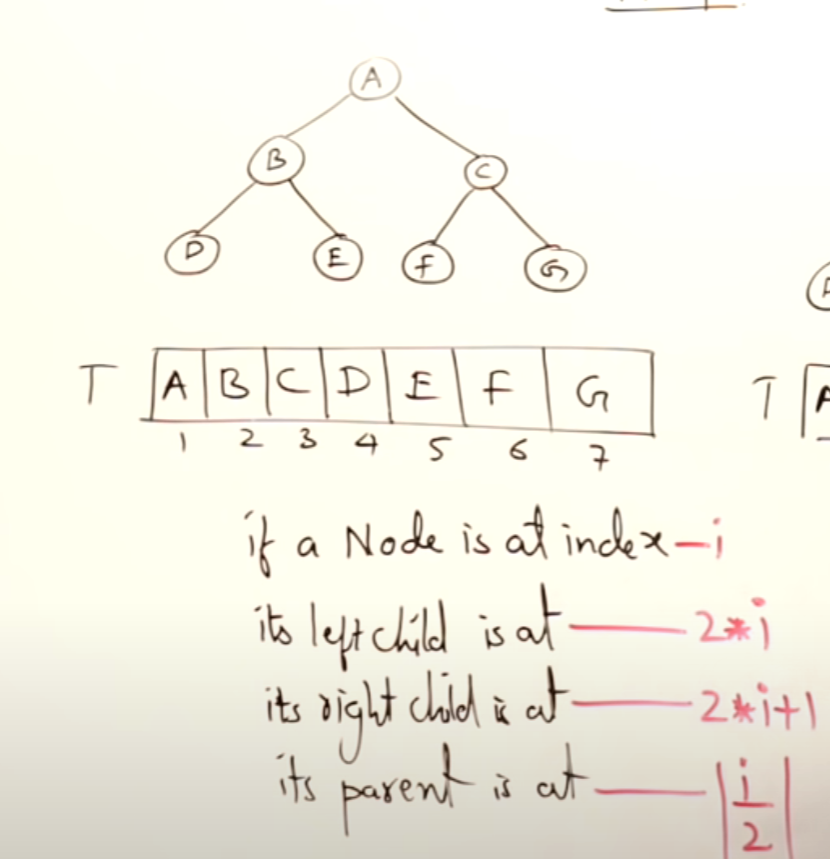 A
B C
D E F G
T A B C D E F G
1 2 3 4 5 6 7
if a Node is at index — i
its left child is at — 2*i
its right child is at — 2*i+1
its parent is at — ⌊i/2⌋
T A